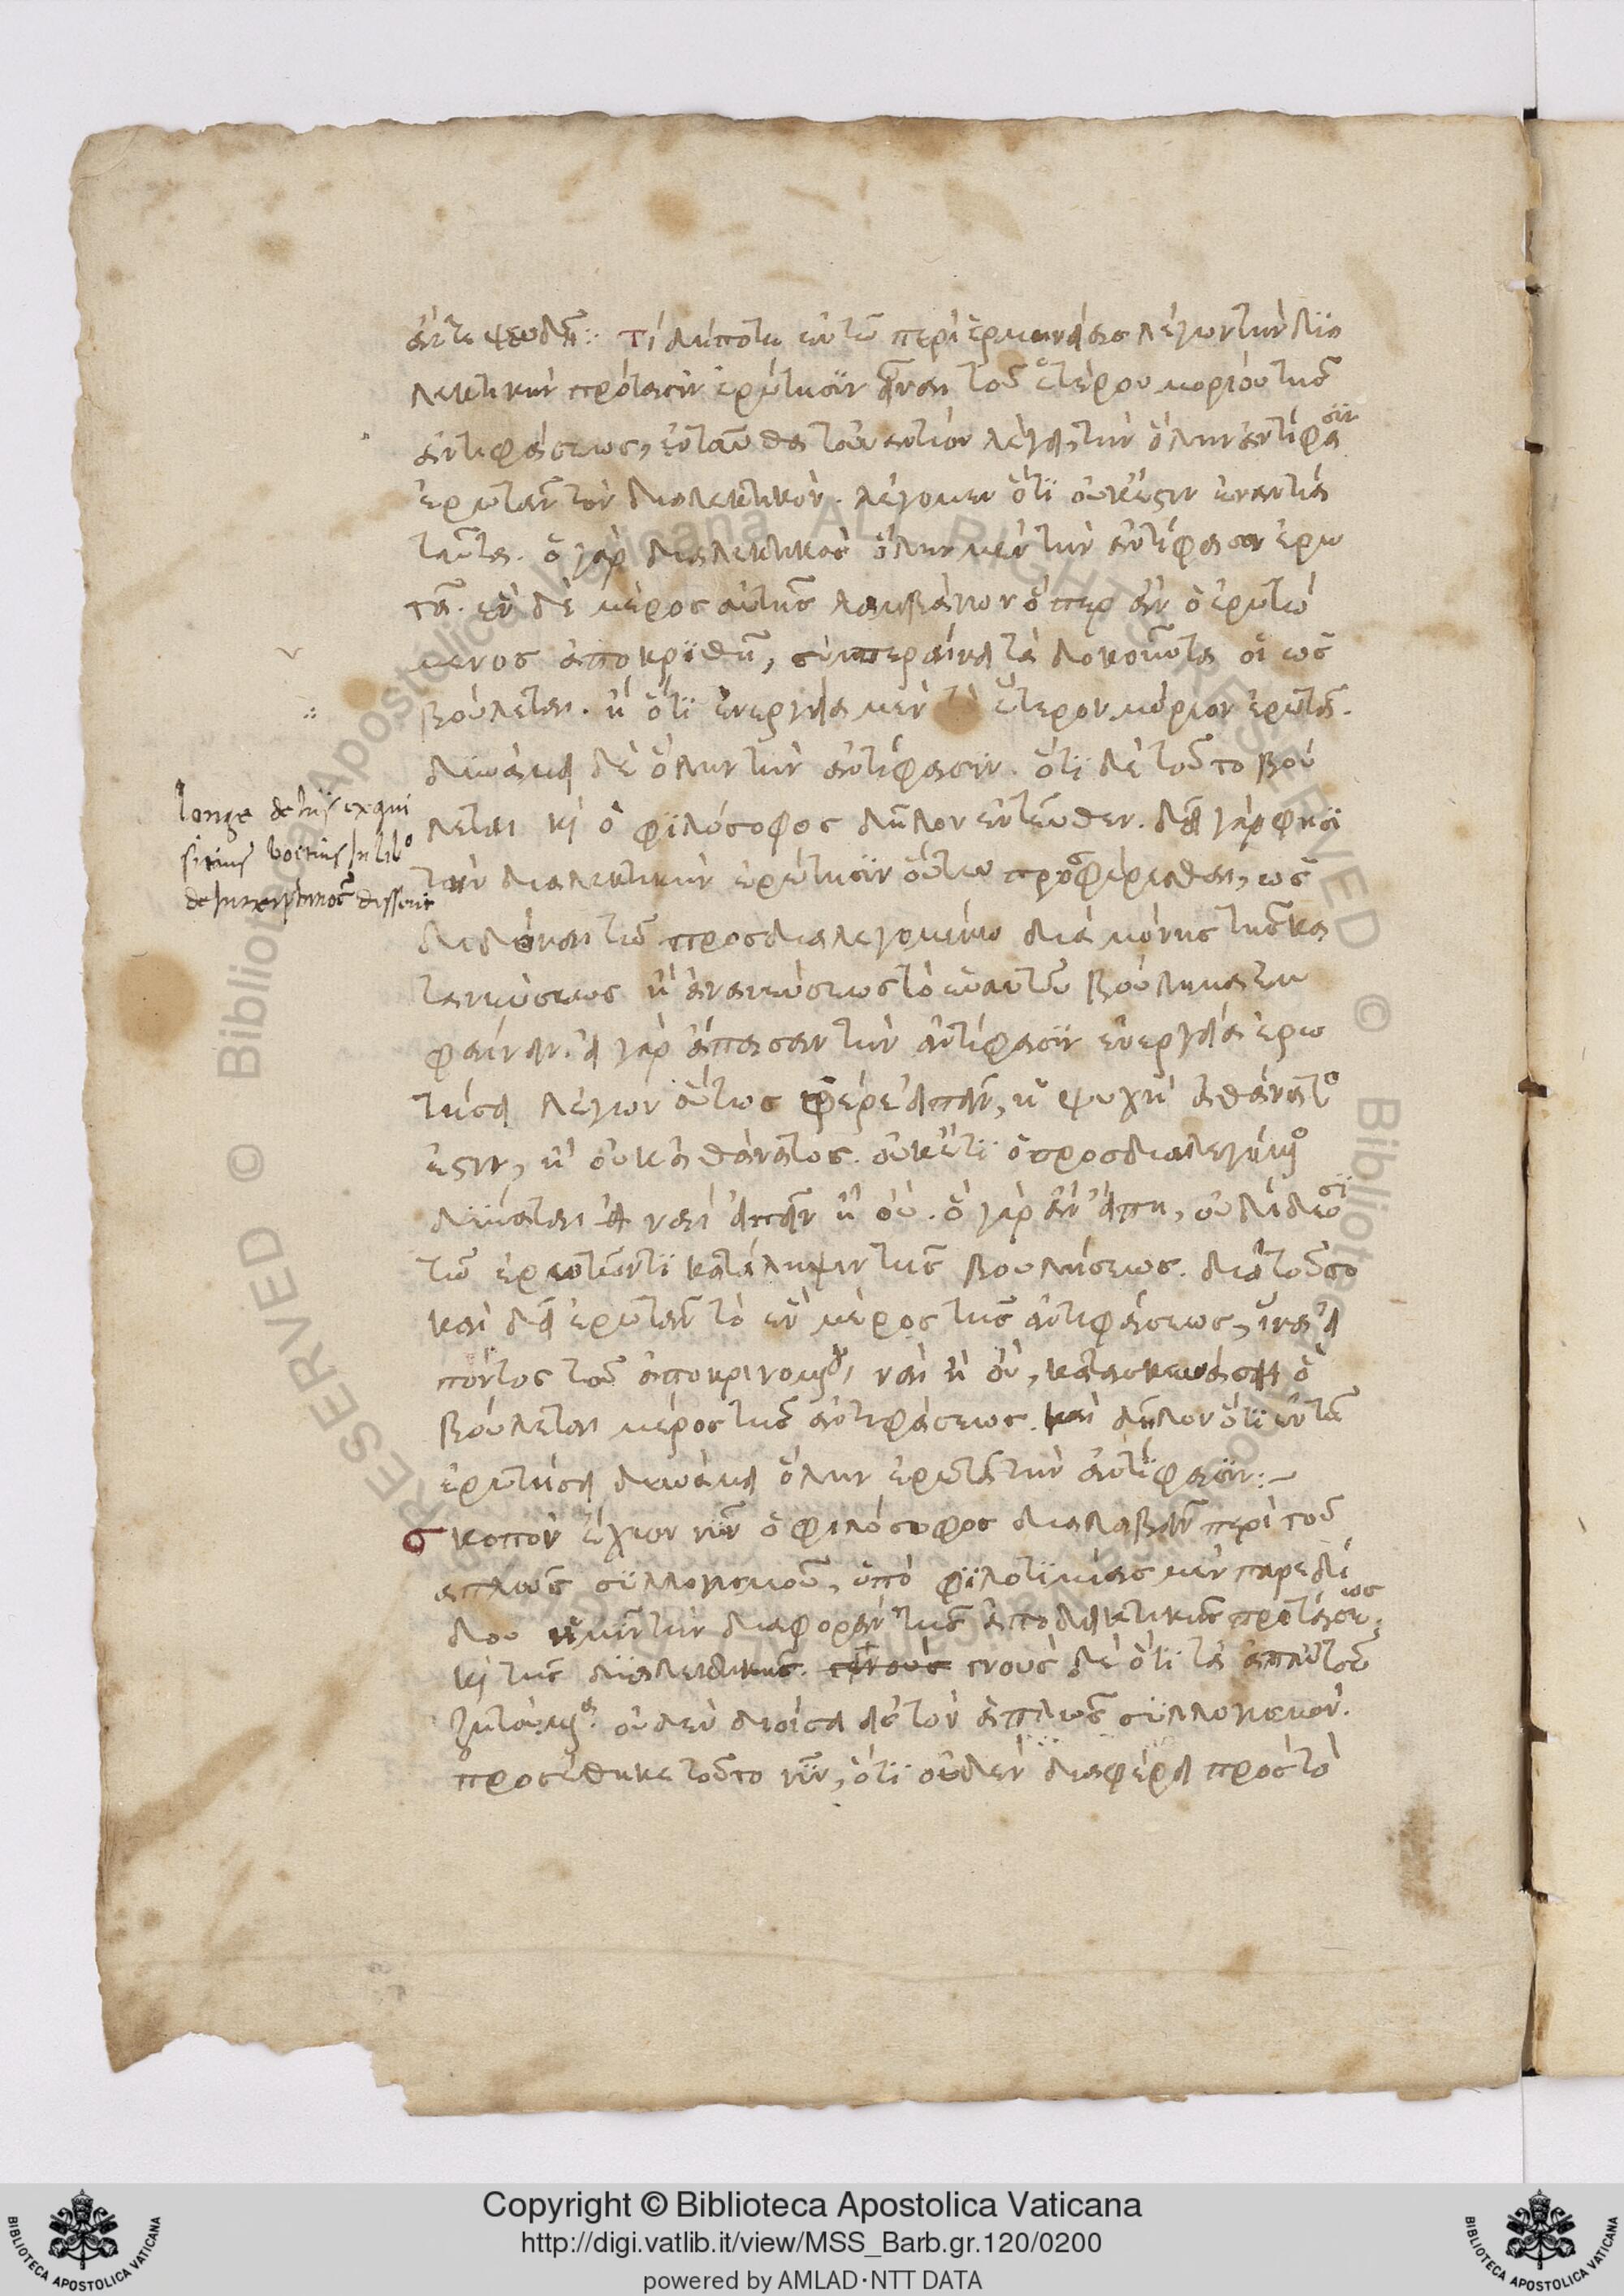 ἄντε ψευδῆ: τί δήποτε ἐν τῶ περὶ ἑρμηνείας λέγων τὴν δια
λεκτικὴν πρότασιν ἐρώτησϊν εἶναι τοῦ ἑτέρου μορίου τῆς
ἀντιφάσεως, ἐνταῦθα τοὐναντίον λέγει, τὴν ὅλην ἀντίφασιν
ἐρωτᾶν τὸν διαλεκτικόν. λέγομεν ὅτι οὐκ ἔστιν ἐναντία
ταῦτα. ὁ γὰρ διαλεκτικὸς ὅλην μὲν τὴν ἀντίφασιν ἐρω
τᾶ. ἓν δὲ μέρος αὐτῆς λαμβάνων ὅπερ ἂν ὁ ἐρωτώ
μενος ἀποκριθῆ, συμπεραίνει τὰ δοκοῦντα οἷ ὡς
βούλεται. ἢ ὅτι ἐνεργεία μὲν τὸ ἕτερον μόριον ἐρωτᾶ.
δυνάμει δὲ ὅλην τὴν ἀντίφασιν. ὅτι δὲ τοῦτο βού
λεται κὶ ὁ φιλόσοφος δῆλον ἐντεῦθεν. δεῖ γὰρ φησὶ
τὴν διαλεκτικὴν ἐρώτησιν οὕτω προσφέρεσθαι, ὡς
διδόναι τῶ προσδιαλεγομένω διὰ μόνης τῆς κα
τανεύσεως ἢ ἀνανεύσεως τὸ ἑαυτοῦ βούλημα ἐμ
φαίνειν. εἰ γὰρ ἅπασαν τὴν ἀντίφασιν ἐνεργεία ἐρω
τήσει λέγων οὕτως φέρε εἰπεῖν, ἡ ψυχὴ ἀθάνατος
ἐστιν, ἢ οὐκ ἀθάνατος. οὐκέτι ὁ προσδιαλεγόμενος
δύναται ναὶ εἰπεῖν ἢ οὔ. ὃ γὰρ ἂν εἴπη, οὐ δίδωσι
τῶ ἐρωτῶντι κατάληψιν τῆς βουλήσεως. διὰ τοῦτο
καὶ δεῖ ἐρωτᾶν τὸ ἓν μέρος τῆς ἀντιφάσεως, ἵνα εἰ
πόντος τοῦ ἀποκρινομένου, ναὶ ἢ οὔ, κατασκευάση ὃ
βούλεται μέρος τῆς ἀντιφάσεως. καὶ δῆλον ὅτι ἐν τῶ
ἐρωτῆσαι δυνάμει ὅλην ἐρωτᾶ τὴν ἀντίφασιν:~
σκοπὸν ἔχων νῦν ὁ φιλόσοφος διαλαβεῖν περὶ τοῦ
ἁπλῶς συλλογισμοῦ, ὑπὸ φιλοτιμίας μὲν παρεδί
δου ἡμῖν τὴν διαφορὰν τῆς ἀποδεικτικῆς προτάσεως.
κὶ τῆς διαλεκτικῆς. γνοὺς δὲ ὅτι τὰ
ζητούμενα. οὐδὲν διοίσει εἰς τὸν ἁπλῶς συλλογισμόν.
προσέθηκε τοῦτο νῦν, ὅτι οὐδὲν διαφέρει πρὸς τὸ
longe de hijs exqui
sitius boetius in libo
de Interptinoe disserit
Copyright © Biblioteca Apostolica Vaticana
http://digi.vatlib.it/view/MSS_Barb.gr.120/0200
powered by AMLAD·NTT DATA
BIBLIOTECA APOSTOLICA VATICANA
BIBLIOTECA APOSTOLICA VATICANA